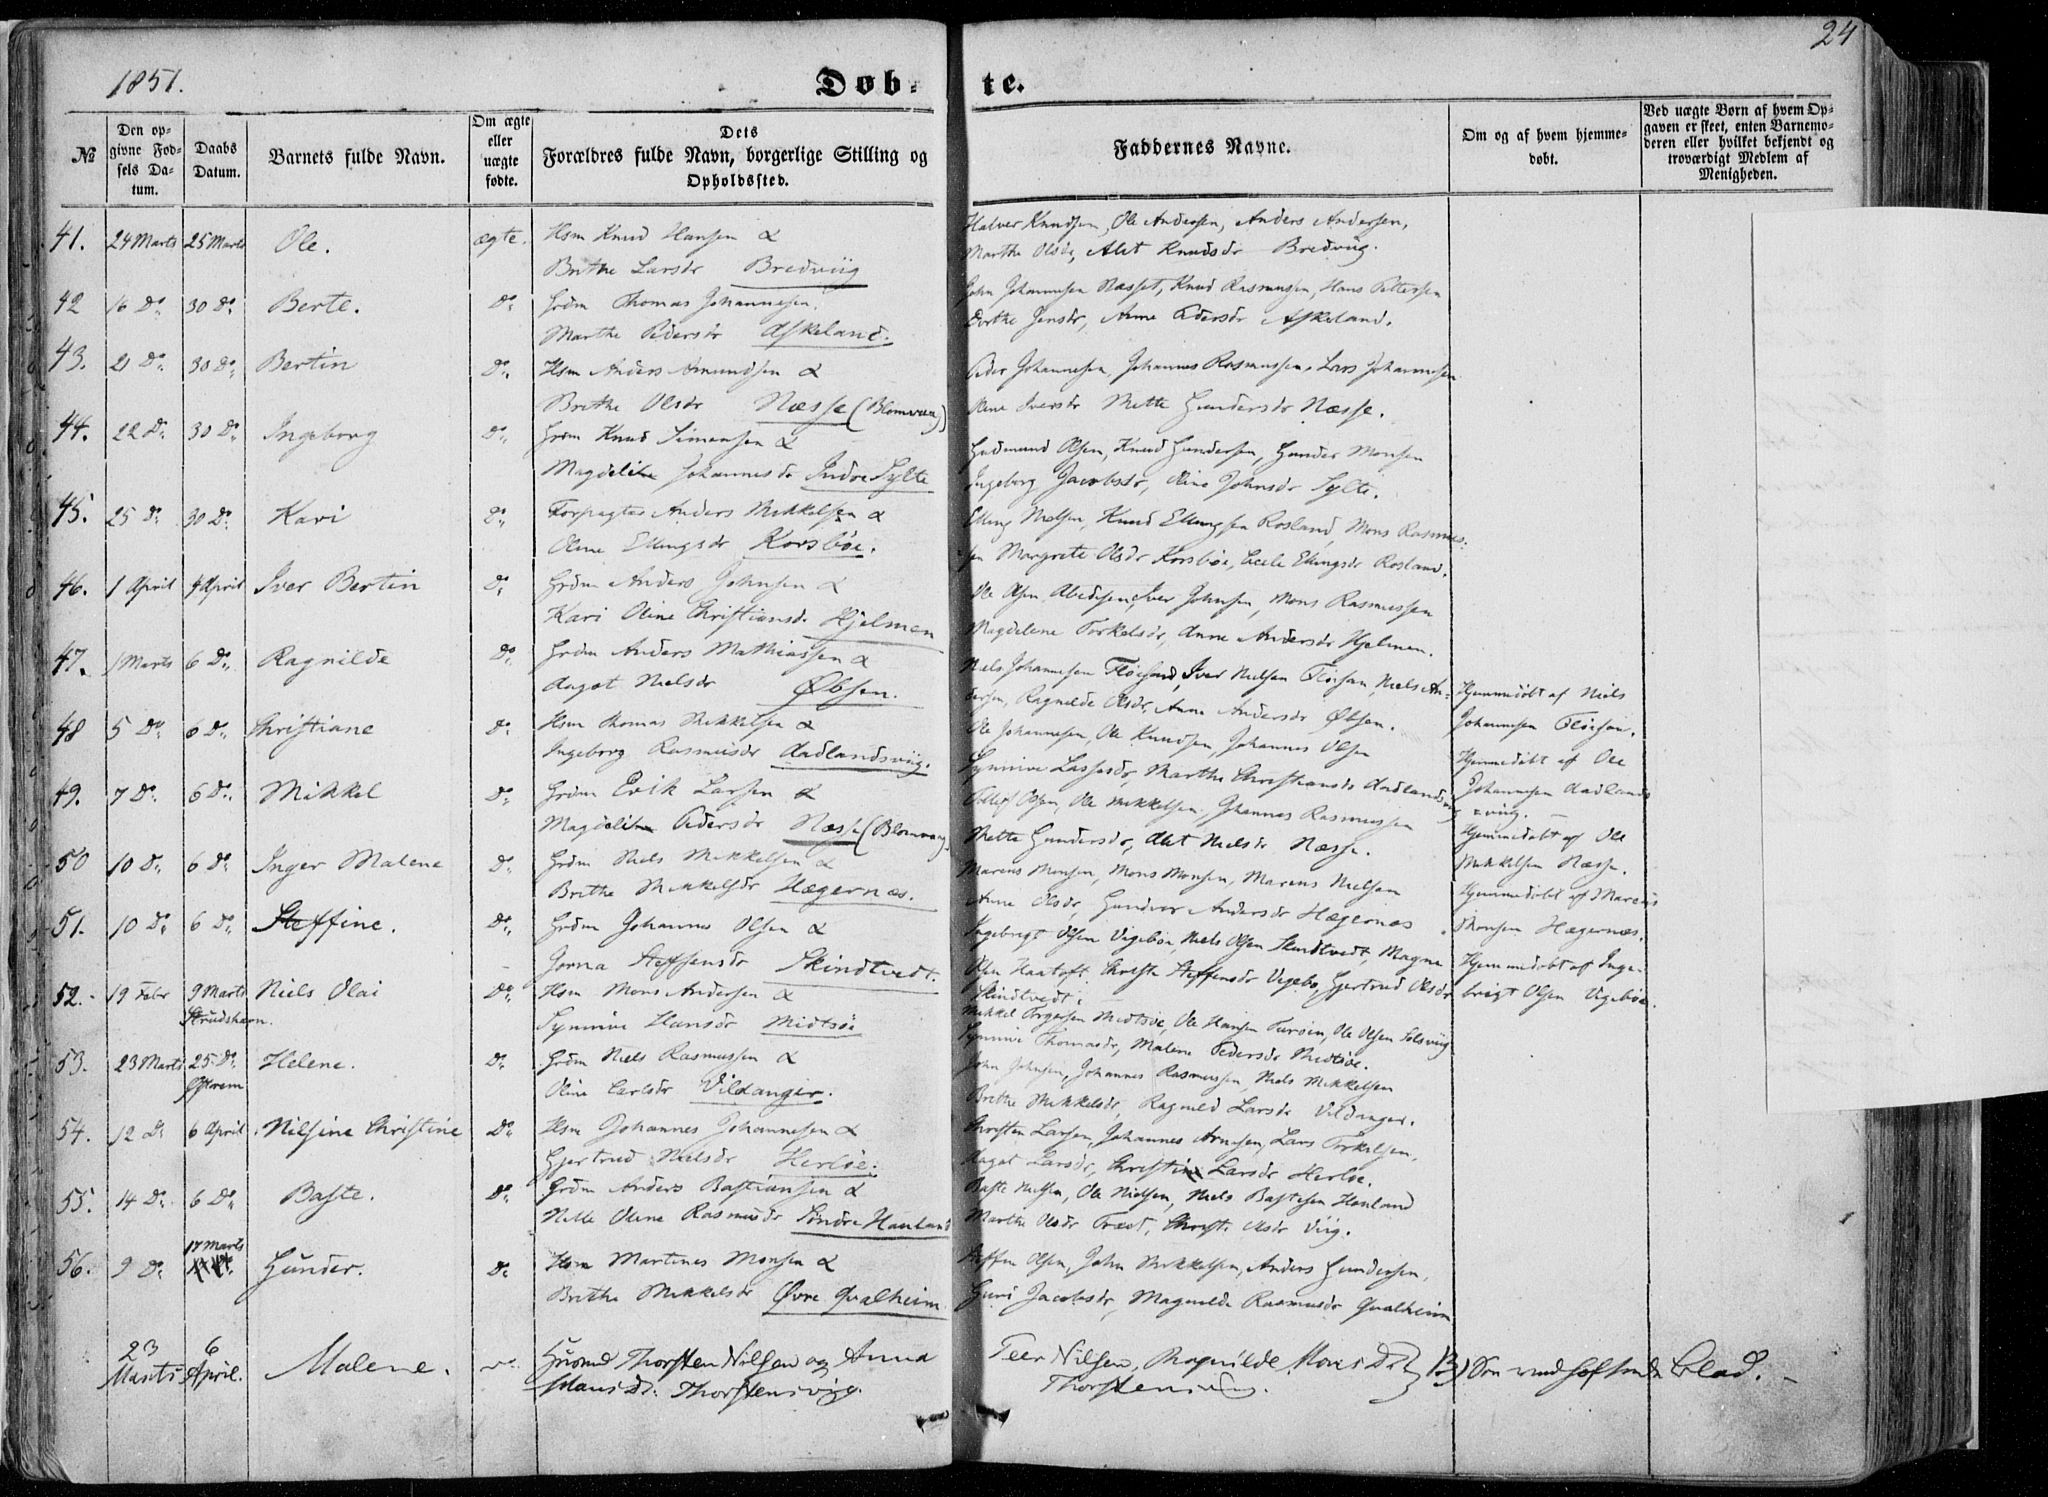 24
1851.
Døb-te.
№
Den opgivne Fødsels Datum.
Daabs Datum.
Barnets fulde Navn.
Om ægte eller uægte fødte.
Dets Forældres fulde Navn, borgerlige Stilling og Opholdssted.
Faddernes Navne.
Om og af hvem hjemmedøbt.
Ved uægte Børn af hvem Opgaven er skeet, enten Barnemoderen eller hvilket bekjendt og troværdigt Medlem af Menigheden.
41. 24 Marts 25 Marts Ole. ægte. Hsm Knud Hansen &
Brithe Larsdr Bredviig
Halver Knudsen, Ole Andersen, Anders Andersen,
Marthe Olsdr, Alet Knudsdr Bredviig.
42 16 Do 30 Do Berte. Do Grdm Thomas Johannesen.
Marthe Pedersdr Askeland.
John Johannesen Næsset, Knud Rasmussen, Hans Pettersen
Dorthe Jensdr, Anne Pedersdr Askeland.
43. 21 Do 30 Do Bertin Do Hsm Anders Amundsen &
Brithe Olsdr Næsse (Blomvaag)
Peder Johannesen, Johannes Rasmussen, Lars Johannesen
Oline Iversdr Mette Gundersdr Næsse.
44. 22 Do 30 Do Ingeborg Do Grdm Knud Simensen &
Magdeline Johannesdr Indre Sylte
Gudmund Olsen, Knud Gundersen, Gunder Monsen
Ingeborg Jacobsdr, Oline Johnsdr Sylte.
45. 25 Do 30 Do Kari Do Forpagter Anders Mikkelsen &
Oline Ellingsdr Korsbøe.
Elling Nielsen, Knud Ellingsen Rosland, Mons Rasmus-
sen Margrete Olsdr Korsbøe, Cecele Ellingsdr Rosland.
46. 1 April 4 April Iver Bertin Do Grdm Anders Johnsen &
Kari Oline Christiansdr Hjelmen
Ole Olsen, Iver Johnsen, Mons Rasmussen
Magdelene Torkelsdr, Anne Andersdr Hjelmen.
47. 1 Marts 6 Do Ragnilde Do Grdm Anders Mathiassen &
Aagot Nielsdr Øbsen.
Niels Johannesen Fløisand, Iver Nielsen Fløisan, Niels An-
dersen, Ragnilde Olsdr, Anne Andersdr Øbsen.
Hjemmedøbt af Niels
Johannesen Fløisan.
48 5 Do 6 Do Christiane Do Hsm Thomas Mikkelsen &
Ingeborg Rasmusdr Aadlandsviig.
Ole Johannesen, Ole Knudsen, Johannes Olsen
Synnive Lassesdr, Marthe Christiansdr Aadlandsviig
Hjemmedøbt af Ole
Johannesen Aadlands
=viig.
49. 7 Do 6 Do Mikkel Do Grdm Erik Larsen &
Magdeline Pedersdr Næsse (Blomvaag)
Tollef Olsen, Ole Mikkelsen, Johannes Rasmussen
Mette Gundersdr, Alet Nielsdr Næsse.
Hjemmedøbt af Ole
Mikkelsen Næsse.
50 10 Do 6 Do Inger Malene Do Grdm Niels Mikkelsen &
Brithe Mikkelsdr Hægernæs.
Marcus Monsen, Mons Monsen, Marcus Nielsen
Anne Olsdr, Gundvor Andersdr Hægernæs
Hjemmedøbt af Marcus
Monsen Hægernæs.
51. 10 Do 6 Do Steffine. Do Grdm Johannes Olsen &
Gorna Steffensdr Skindtvedt.
Ingebrigt Olsen Vigebøe, Niels Olsen Skindtvedt, Magne
Olsen Haatoft, Christe Steffensdr Vigebø, Gjertrud Olsdr
Skindtvedt.
Hjemmedøbt af Inge-
brigt Olsen Vigebøe.
52. 19 Febr 9 Marts Skrudshavn. Niels Olai Do Hsm Mons Andersen &
Synnive Hansdr Midtsøe
Mikkel Torgersen Midtsøe, Ole Hansen Turøin, Ole Olsen Solsviig
Synnive Thomasdr, Malene Pedersdr Midtsøe.
53. 23 Marts 25 Do Østrem Helene. Do Grdm Niels Rasmussen &
Oline Carlsdr Vildanger.
John Johnsen, Johannes Rasmussen, Niels Mikkelsen
Brithe Mikkelsdr, Ragnild Larsdr Vildanger.
54. 12 Do 6 April Nilsine Christine Do Hsm Johannes Johannesen &
Gjertrud Nielsdr Herløe.
Christen Larsen, Johannes Arnesen, Lars Torkelsen,
Aagot Larsdr, Christine Larsdr Herløe.
55. 14 Do 6 Do Baste. Do Grdm Anders Bastiansen &
Nille Oline Rasmusdr Søndre Hanland
Baste Nielsen, Ole Nielsen, Niels Bastesen Hanland
Marthe Olsdr Træet, Christi Olsdr Viig.
56. 9 Do 17 Marts Gunder. Do Hsm Martines Monsen &
Brithe Mikkelsdr Øvre Qvalheim
Steffen Olsen, John Mikkelsen, Anders Gundersen,
Guri Jacobsdr, Magnilde Rasmusdr Qvalheim
23 Marts 6 April. Malene. Huusmd Thorsten Nilsen og Anna
Monsdt. Thorstensvig.
Peer Nilsen, Ragnilde Mons Dt
Thorstensvig.
Blad.